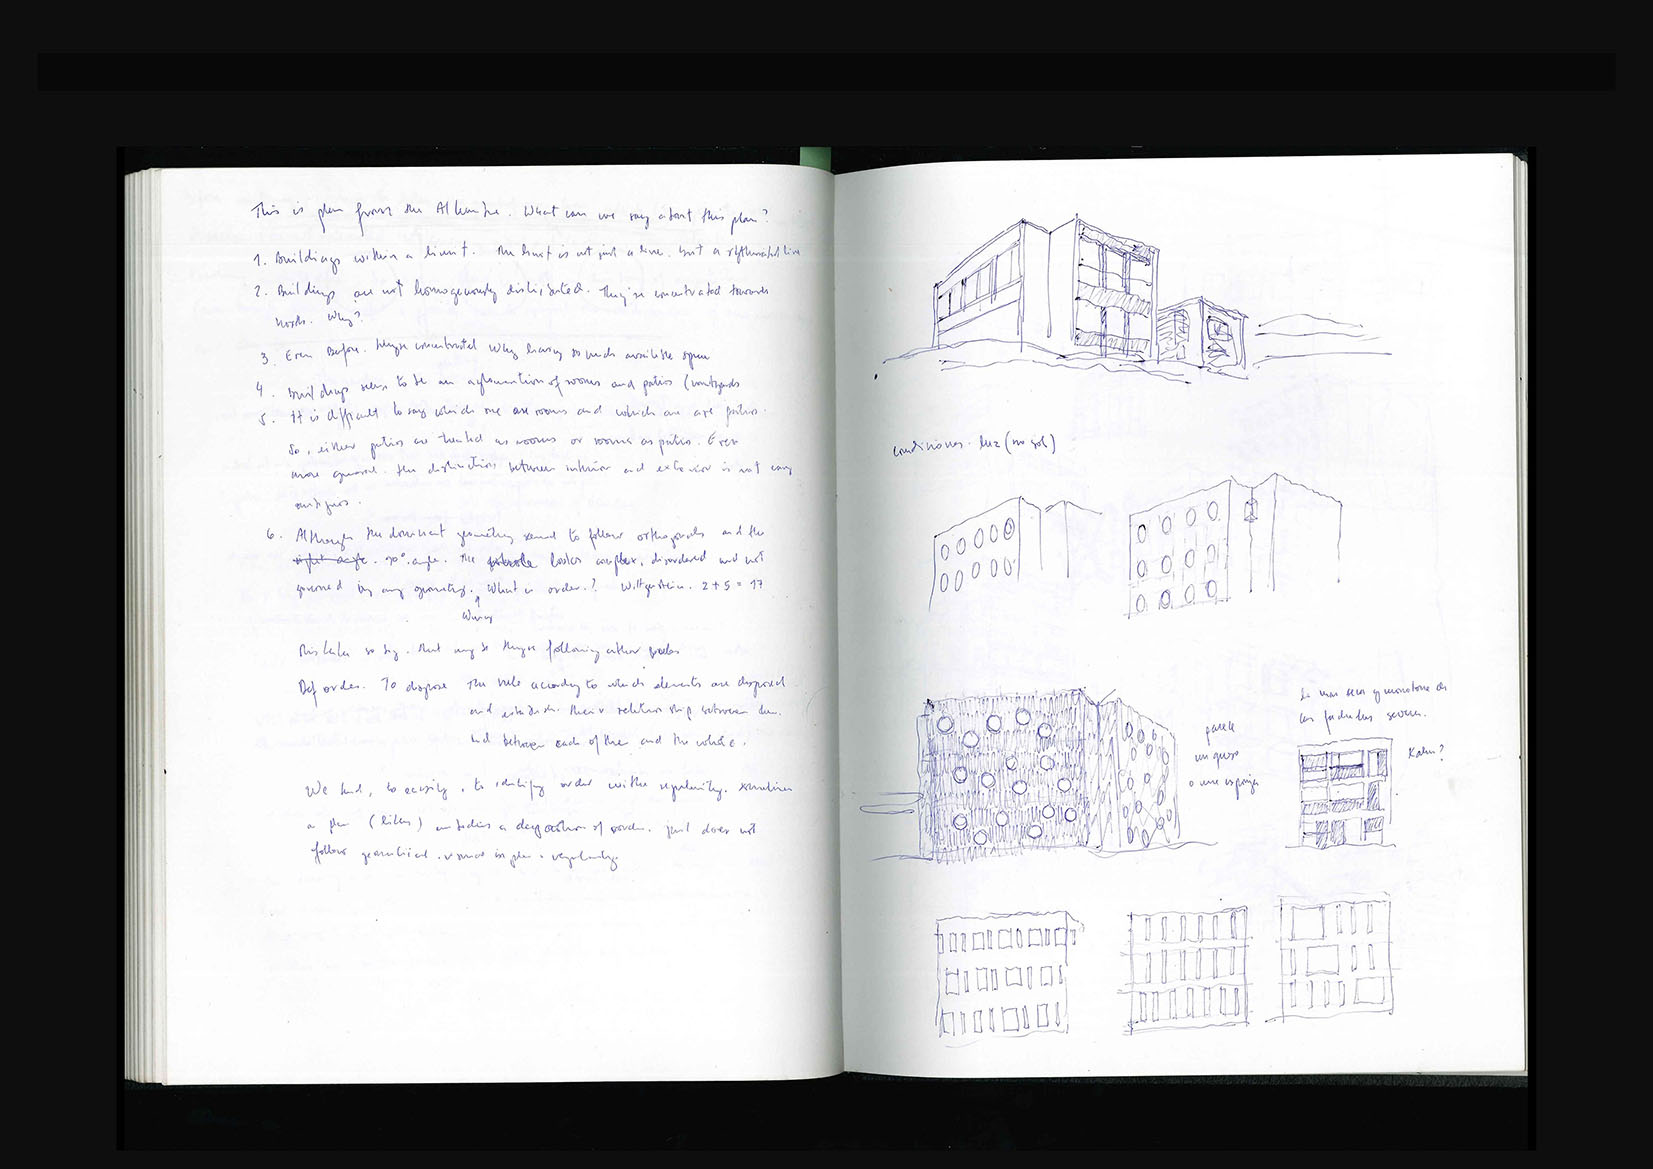 This is plan from the Alhambra. What can we say about this plan?
1. Buildings within a limit. The limit is not just a line. but a rythmated line
2. Buildings are not homogeneously distributed. They're concentrated towards
north. Why?
3. Even Before. Why having so much available space
4. Buildings seem to be an aglomeration of rooms and patios (courtyards
5. It is difficult to say which one are rooms and which one are patios.
So, either patios are treated as rooms or rooms as patios. Even
more general. the distinction between interior and exterior is not very
6. Although the dominant geometry seemed to follow orthogonals and the
right angle. 90° angle. The looks complex, disordered and not
governed by any geometry. What is order.? Wittgenstein. 2+5=17
to say. that may be they're following other
Def order. To dispose The rule according to which elements are disposed
and establish their relationship between them.
and between each of them and the whole.
We tend, to easily, to identify order with regularity. sometimes
a plan (like) a of order. just does not
follow geometrical. in plan. regularity
condiciones. luz (no sol)
parece
un queso
o una esponja
Lo mas seco y monotono
las fachadas severas.
Kahn?